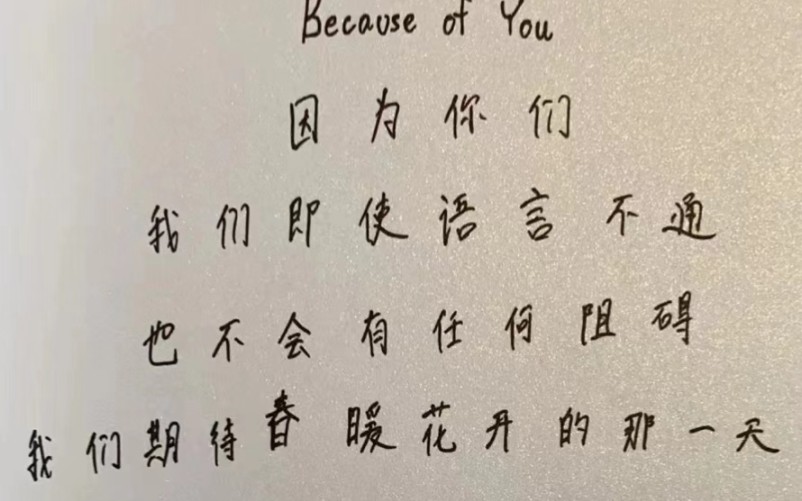 Because of You
因为你们
我们即使语言不通
也不会有任何阻碍
我们期待春暖花开的那一天